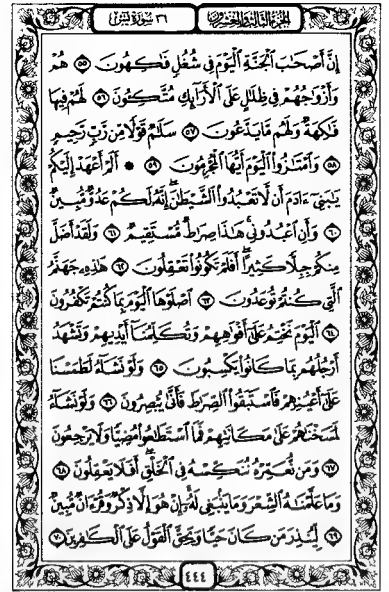 الجزء الثالث والعشرون ٣٦ سورة يس
إِنَّ أَصْحَٰبَ ٱلْجَنَّةِ ٱلْيَوْمَ فِي شُغُلٍ فَٰكِهُونَ ٥٥ هُمْ
وَأَزْوَٰجُهُمْ فِي ظِلَٰلٍ عَلَى ٱلْأَرَآئِكِ مُتَّكِـُٔونَ ٥٦ لَهُمْ فِيهَا
فَٰكِهَةٌ وَلَهُم مَّا يَدَّعُونَ ٥٧ سَلَٰمٌ قَوْلًا مِّن رَّبٍّ رَّحِيمٍ
٥٨ وَٱمْتَٰزُوا۟ ٱلْيَوْمَ أَيُّهَا ٱلْمُجْرِمُونَ ٥٩ أَلَمْ أَعْهَدْ إِلَيْكُمْ
يَٰبَنِيٓ ءَادَمَ أَن لَّا تَعْبُدُوا۟ ٱلشَّيْطَٰنَ إِنَّهُۥ لَكُمْ عَدُوٌّ مُّبِينٌ
٦٠ وَأَنِ ٱعْبُدُونِي هَٰذَا صِرَٰطٌ مُّسْتَقِيمٌ ٦١ وَلَقَدْ أَضَلَّ
مِنكُمْ جِبِلًّا كَثِيرًا أَفَلَمْ تَكُونُوا۟ تَعْقِلُونَ ٦٢ هَٰذِهِۦ جَهَنَّمُ
ٱلَّتِي كُنتُمْ تُوعَدُونَ ٦٣ ٱصْلَوْهَا ٱلْيَوْمَ بِمَا كُنتُمْ تَكْفُرُونَ
٦٤ ٱلْيَوْمَ نَخْتِمُ عَلَىٰٓ أَفْوَٰهِهِمْ وَتُكَلِّمُنَآ أَيْدِيهِمْ وَتَشْهَدُ
أَرْجُلُهُم بِمَا كَانُوا۟ يَكْسِبُونَ ٦٥ وَلَوْ نَشَآءُ لَطَمَسْنَا
عَلَىٰٓ أَعْيُنِهِمْ فَٱسْتَبَقُوا۟ ٱلصِّرَٰطَ فَأَنَّىٰ يُبْصِرُونَ ٦٦ وَلَوْ نَشَآءُ
لَمَسَخْنَٰهُمْ عَلَىٰ مَكَانَتِهِمْ فَمَا ٱسْتَطَٰعُوا۟ مُضِيًّا وَلَا يَرْجِعُونَ
٦٧ وَمَن نُّعَمِّرْهُ نُنَكِّسْهُ فِي ٱلْخَلْقِ أَفَلَا يَعْقِلُونَ ٦٨
وَمَا عَلَّمْنَٰهُ ٱلشِّعْرَ وَمَا يَنۢبَغِي لَهُۥٓ إِنْ هُوَ إِلَّا ذِكْرٌ وَقُرْءَانٌ مُّبِينٌ
٦٩ لِّيُنذِرَ مَن كَانَ حَيًّا وَيَحِقَّ ٱلْقَوْلُ عَلَى ٱلْكَٰفِرِينَ ٧٠
٤٤٤